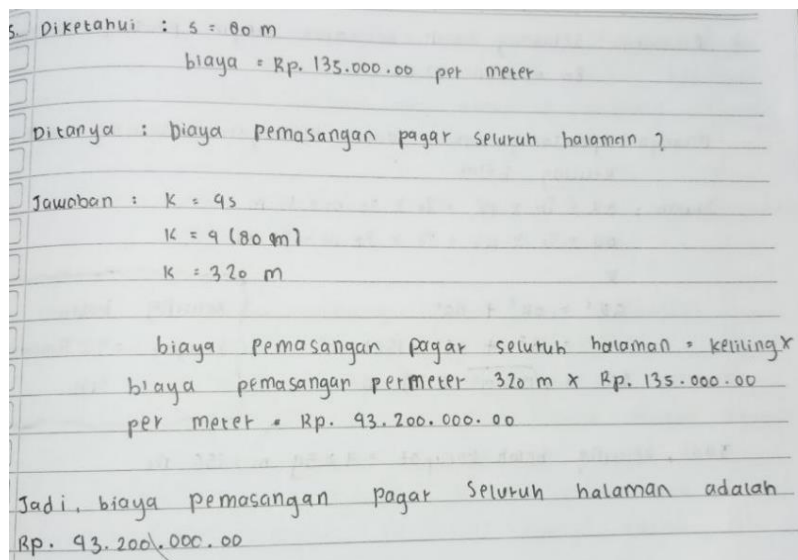 5. Diketahui : s = 80 m
biaya = Rp. 135.000.00 per meter
Ditanya : biaya pemasangan pagar seluruh halaman ?
Jawaban : K = 4s
K = 4 (80 m)
K = 320 m
biaya pemasangan pagar seluruh halaman = keliling x
biaya pemasangan permeter 320 m x Rp. 135.000.00
per meter = Rp. 43.200.000.00
Jadi, biaya pemasangan pagar seluruh halaman adalah
Rp. 43.200.000.00